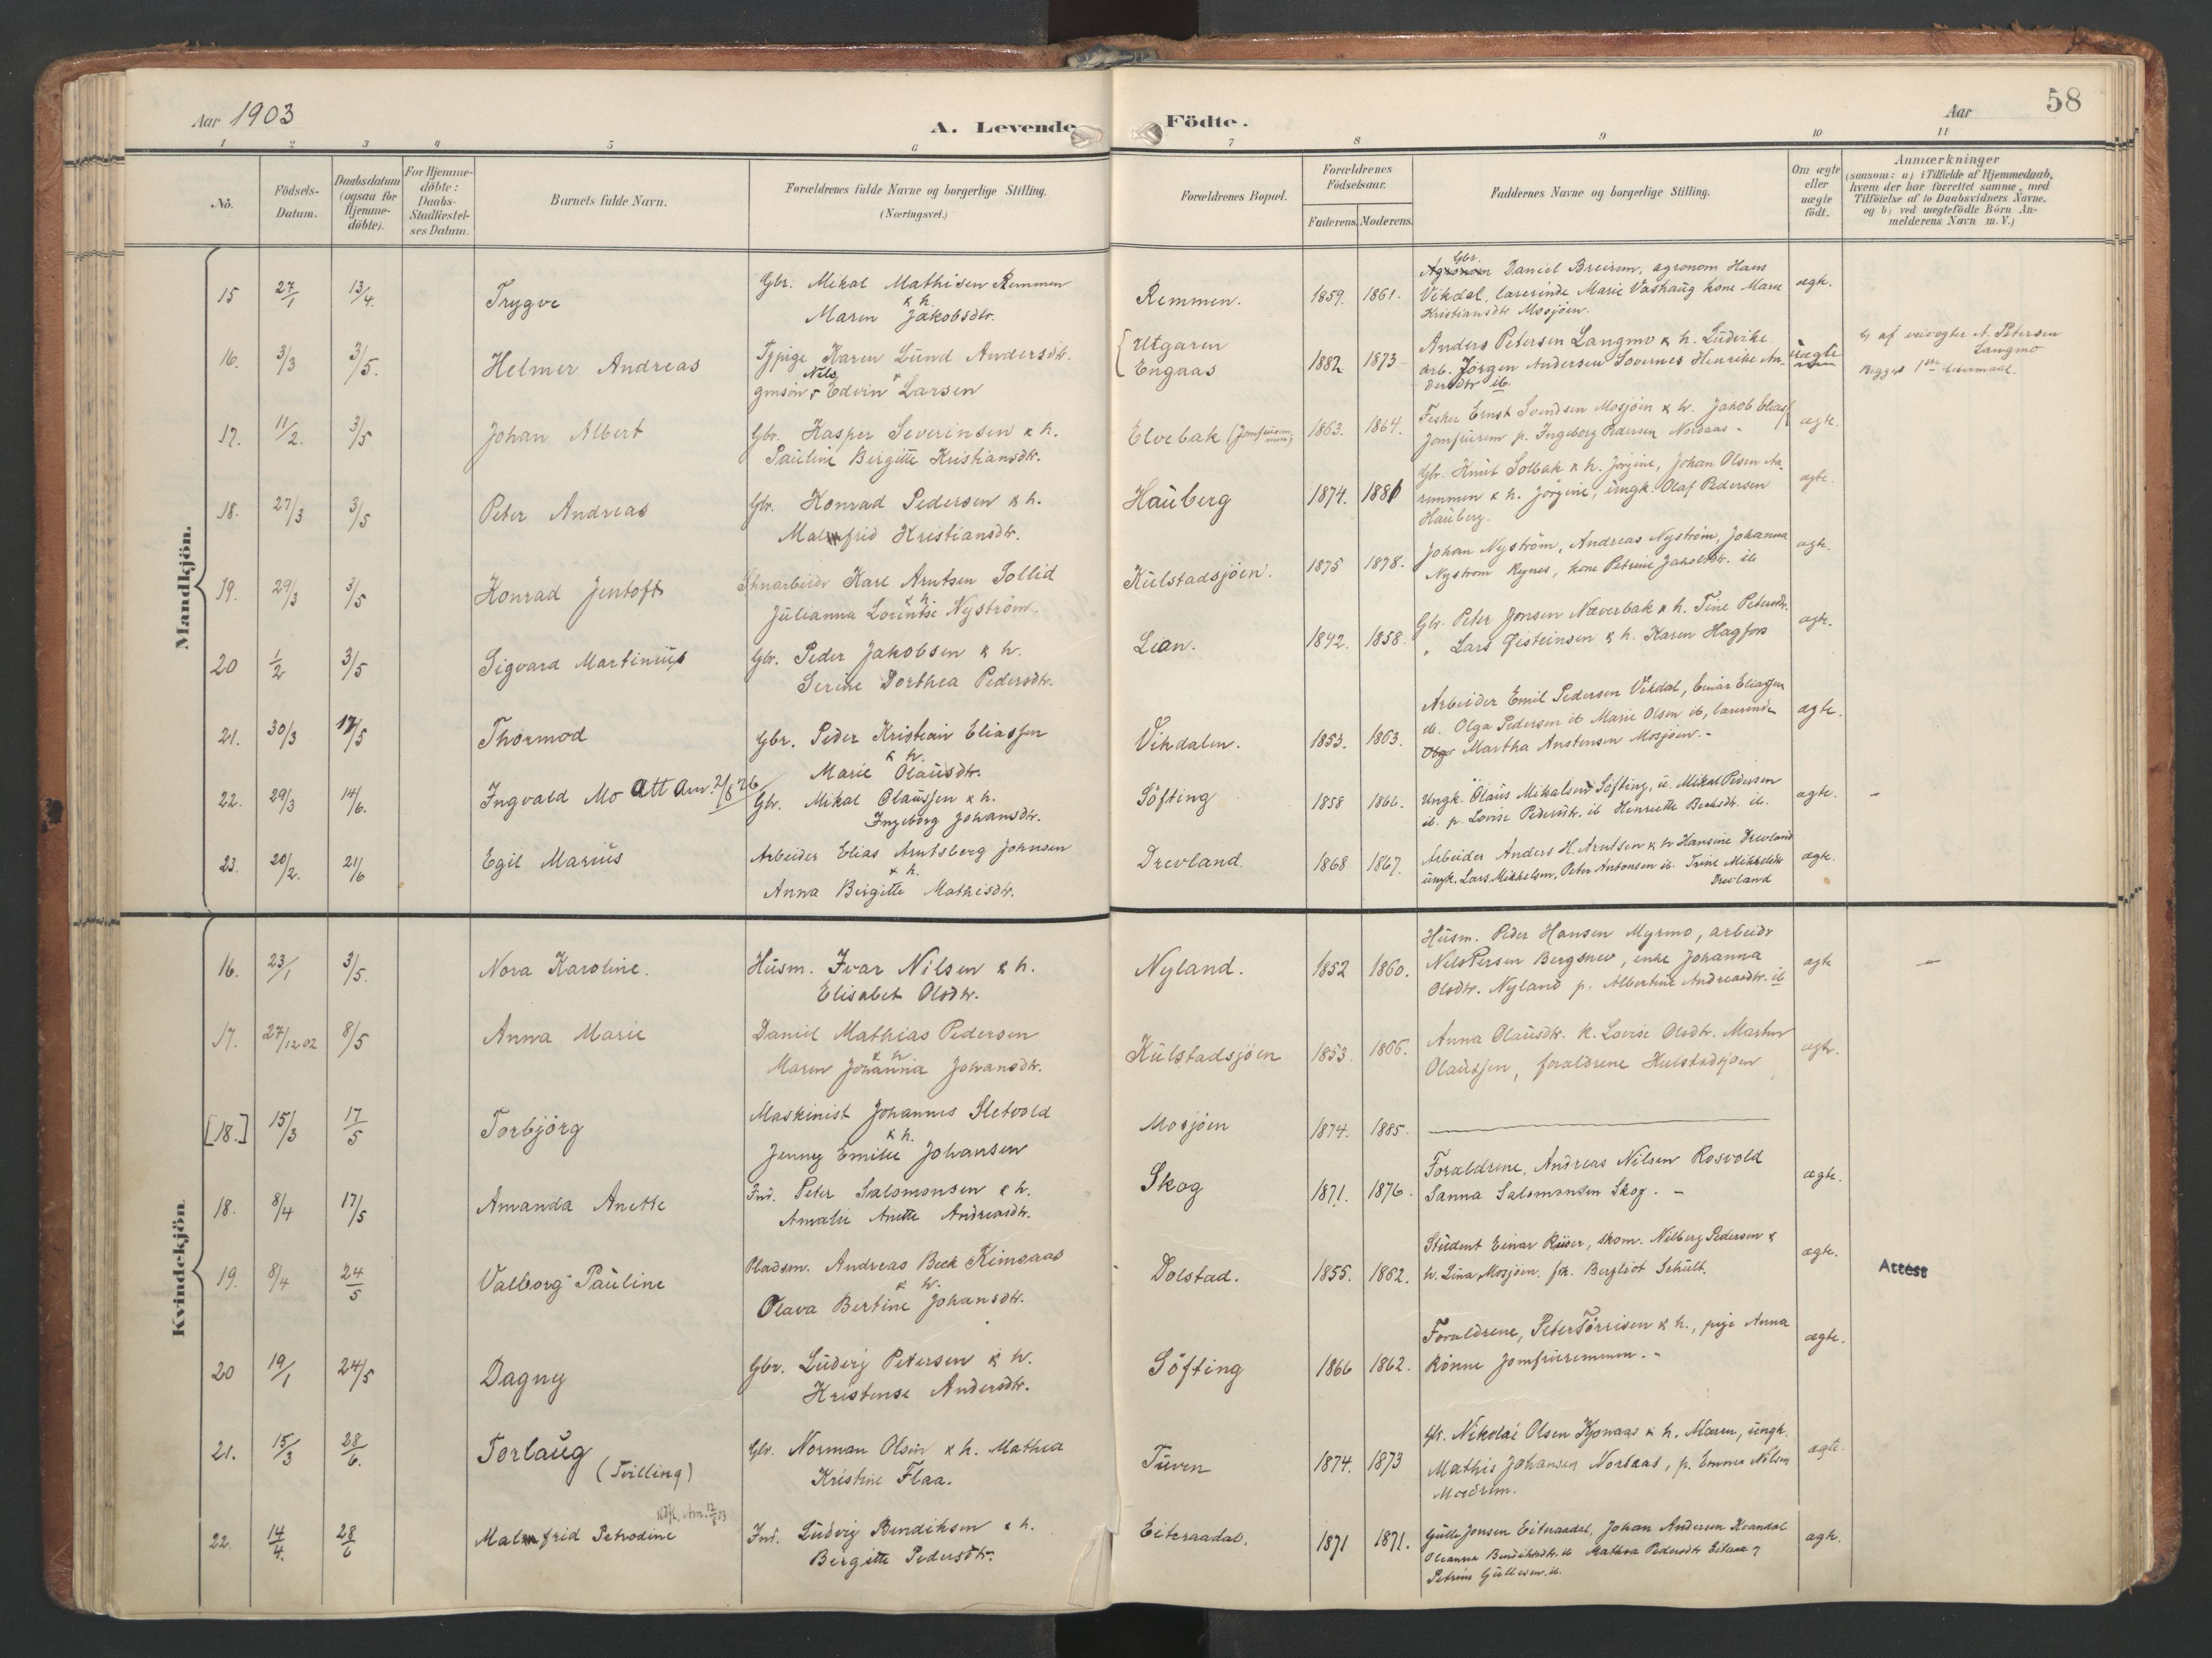 Aar 1903
A. Levende Födte.
Aar
58
1 2 3 4 5 6 7 8 9 10 11
No.
Födsels-Datum.
Daabsdatum (ogsaa for Hjemme-döbte).
For Hjemme-döbte: Daabs-Stadfæstel-ses Datum.
Barnets fulde Navn.
Forældrenes fulde Navne og borgerlige Stilling. (Næringsvei.)
Forældrenes Bopæl.
Forældrenes Födselsaar.
Faderens. Moderens.
Faddernes Navne og borgerlige Stilling.
Om ægte eller uægte födt.
Anmærkninger (saasom: a) i Tilfælde af Hjemmedaab, hvem der har forrettet samme, med Tilföielse af to Daabsvidners Navne, og b) ved uægtefödte Börn An-melderens Navn m. V.)
Mandkjön.
15 27/1 13/4. Trygve
Gbr. Mikal Mathisen Remmen
& h.
Maren Jakobsdtr.
Remmen. 1859. 1861.
Gbr.
Agronom Daniel Breirem, agronom Hans
Vikdal, lærerinde Marie Vashaug kone Maren
Kristiansdtr Mosjöen.
ægte.
16. 3/3 3/5. Helmer Andreas
Tjpige Karen Lund Andersdtr.
Nils
gmsön & Edvin Larsen
Utgaren
Engaas
1882 1873
Anders Petersen Langmo & h. Ludvikke
arb. Jörgen Andersen Henrikke An-
dersdtr ib.
uægte
b) af veivogter A. Petersen
Langmo
Begges 1ste leiermaal.
17. 11/2. 3/5 Johan Albert
Gbr. Kasper Severinsen & h.
Pauline Birgitte Kristiansdtr.
Elvebak 1863. 1864.
Fisker Ernst Svendsen Mosjöen & h. Jakob Elias
Jomfrurem p. Ingeborg Pedersen Nordaas -
ægte.
18. 27/3 3/5 Peter Andreas
Gbr. Konrad Pedersen & h.
Malmfrid Kristiansdtr.
Hauberg 1874. 1881
Gbr. Knut Solbak & h. Jörgine, Johan Olsen Aa-
remmen & h. Jörgine, ungk. Olaf Pedersen
Hauberg.
ægte.
19. 29/3 3/5 Konrad Jentoft
Karl Arntsen Sollid
& h.
Julianna Lorentse Nyström.
Kulstadsjöen. 1875 1878.
Johan Nyström, Andreas Nyström, Johanna
Nyström Rynes, kone Petrine Jakobsdtr. ib
ægte.
20 1/2 3/5 Sigvard Martinus
Gbr. Peder Jakobsen & h.
Serine Dorthea Pedersdtr.
Lian. 1842. 1858.
Gbr. Peter Jonsen Næverbak & h. Tine Petersdtr.
" Lars Gisteinsen & h. Karen Hagfors
ægte.
21. 30/3 17/5 Thormod
Gbr. Peder Kristian Eliassen
& h.
Marie Olausdtr.
Vikdalen. 1853. 1863.
Arbeider Emil Pedersen Vikdal, Einar Eliassen
ib. Olga Pedersen ib Marie Olsen ib, lærerinde
Olga Martha Anstensen Mosjöen. -
ægte.
22. 29/3 14/6. Ingvald Mo Att Anv. 2/6 26
Gbr. Mikal Olaussen & h.
Ingeborg Johansdtr.
Söfting 1858 1866.
Ungk. Olaus Mikalsen Söfting, u. Mikal Pedersen
ib. p. Lovise Pedersdtr. ib Henriette Becksdtr. ib.
ægte. -
23. 20/2. 21/6 Egil Marius
Arbeider Elias Arntsberg Johnsen
& h.
Anna Birgitte Mathisdtr.
Drevland. 1868 1867.
Arbeider Anders H. Arntsen & h Hansine Drevland
ungk. Lars Mikkelsen, Peter Antonsen ib. Trine Mikkelsdtr
Drevland
ægte.
Kvindekjön.
16. 23/1 3/5. Nora Karoline.
Husm. Ivar Nilsen & h.
Elisabet Olsdtr.
Nyland. 1852 1860.
Husm. Peder Hansen Myrmo, arbeider
Nils Persen Bergsnev, enke Johanna
Olsdtr. Nyland p. Albertine Andreasdtr. ib
ægte -
17. 27/12 02 8/5 Anna Marie
Daniel Mathias Pedersen
& h
Maren Johanna Johansdtr.
Kulstadsjöen 1853. 1866.
Anna Olausdtr. k. Lovise Olsdtr. Martin
Olaussen, forældrene Kulstadsjöen
ægte.
[18.] 15/3 17/5 Torbjörg
Maskinist Johannes Sletvold
& h.
Jenny Emilie Johansen
Mosjöen 1874. 1885.
18. 8/4 17/5 Amanda Anette
Ind. Peter Salomonsen & h.
Amalie Anette Andreasdtr.
Skog 1871. 1876.
Forældrene, Andreas Nilsen Rosvold
Sanna Salomonsen Skog. -
ægte.
19. 8/4 24/5 Valborg Pauline
Pladsm. Andreas Beck Kimsaas
& h.
Olava Bertine Johansdtr.
Dolstad. 1855. 1862.
Student Einar Riiser, skom. Nilberg Pedersen &
h. Lina, Mosjöen, frk. Bergliot Schult.
ægte.
Attest
20 19/1 24/5 Dagny
Gbr. Ludvig Petersen & h.
Kristense Andersdtr.
Söfting 1866 1862.
Forældrene, Peter Törrisen & h., pige Anna
Rönne Jomfruremmen. -
ægte.
21. 15/3 28/6. Torlaug (Tvilling)
Gbr. Norman Olsen & h. Mathea
Kristine Flaa.
Tuven 1874. 1873
Gbr. Nikolai Olsen Kjonaas & h. Maren, ungk.
Mathis Johansen Nordaas, p. Emma Nilsen
ægte.
22. 14/4. 28/6 Malmfrid Petrodine
Ind. Ludvig Bendiksen & h.
Birgitte Pedersdtr.
Eiteraadal. 1871 1871.
Gulle Jonsen Eiteraadal, Johan Andersen Kvandal
Oleanna Bendiksdtr. ib Mathea Pedersdtr Eiteraa
Petrine Gullesen. ib.
ægte.